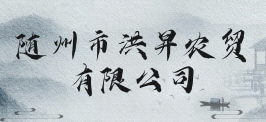 随州市洪昇农贸
有限公司